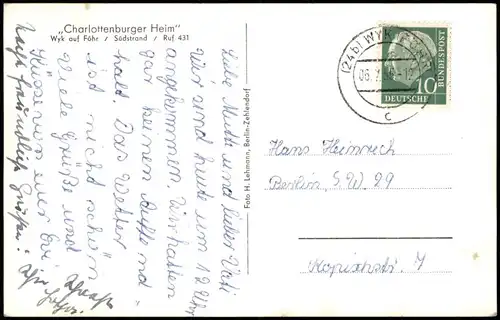 „Charlottenburger Heim"
Wyk auf Föhr / Südstrand / Ruf 431
Liebe Mutti und lieber Vati
Wir sind heute um 12 Uhr
angekommen. Wir hatten
gar keinen Aufent
halt. Das Wetter
ist nicht schön
Viele Grüße und
Küsse von eurer Evi
Auch freundliche Grüße
Foto H. Lehmann, Berlin-Zehlendorf
(24b) WYK
06.
c
DEUTSCHE BUNDESPOST
10
Hans Heinrich
Berlin S.W. 29
Kopischstr. 7